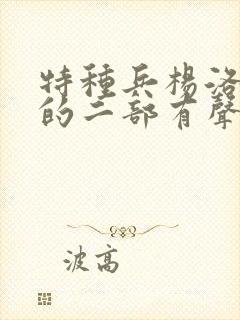 特種兵楊洛
的二部有聲
波高